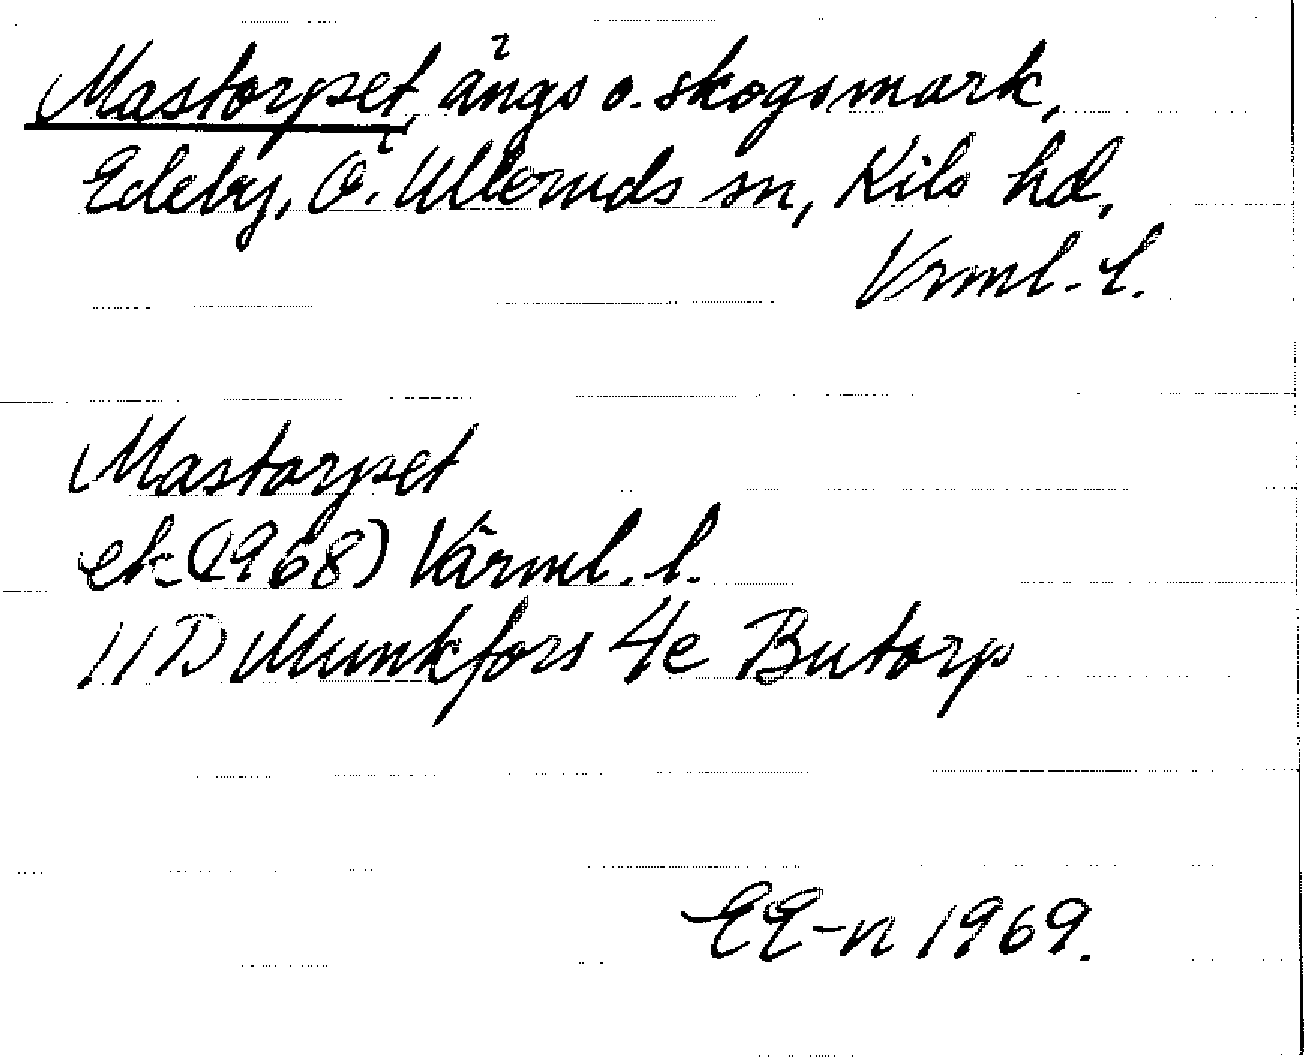 Mastorpet, ängs o. skogsmark,
Edeby, Ö. Ulleruds sn, Kils hd,
Vrml. l.
Mastorpet
ek (1968) Värml. l.
11 D Munkfors 4e Butorp
EE-n 1969.